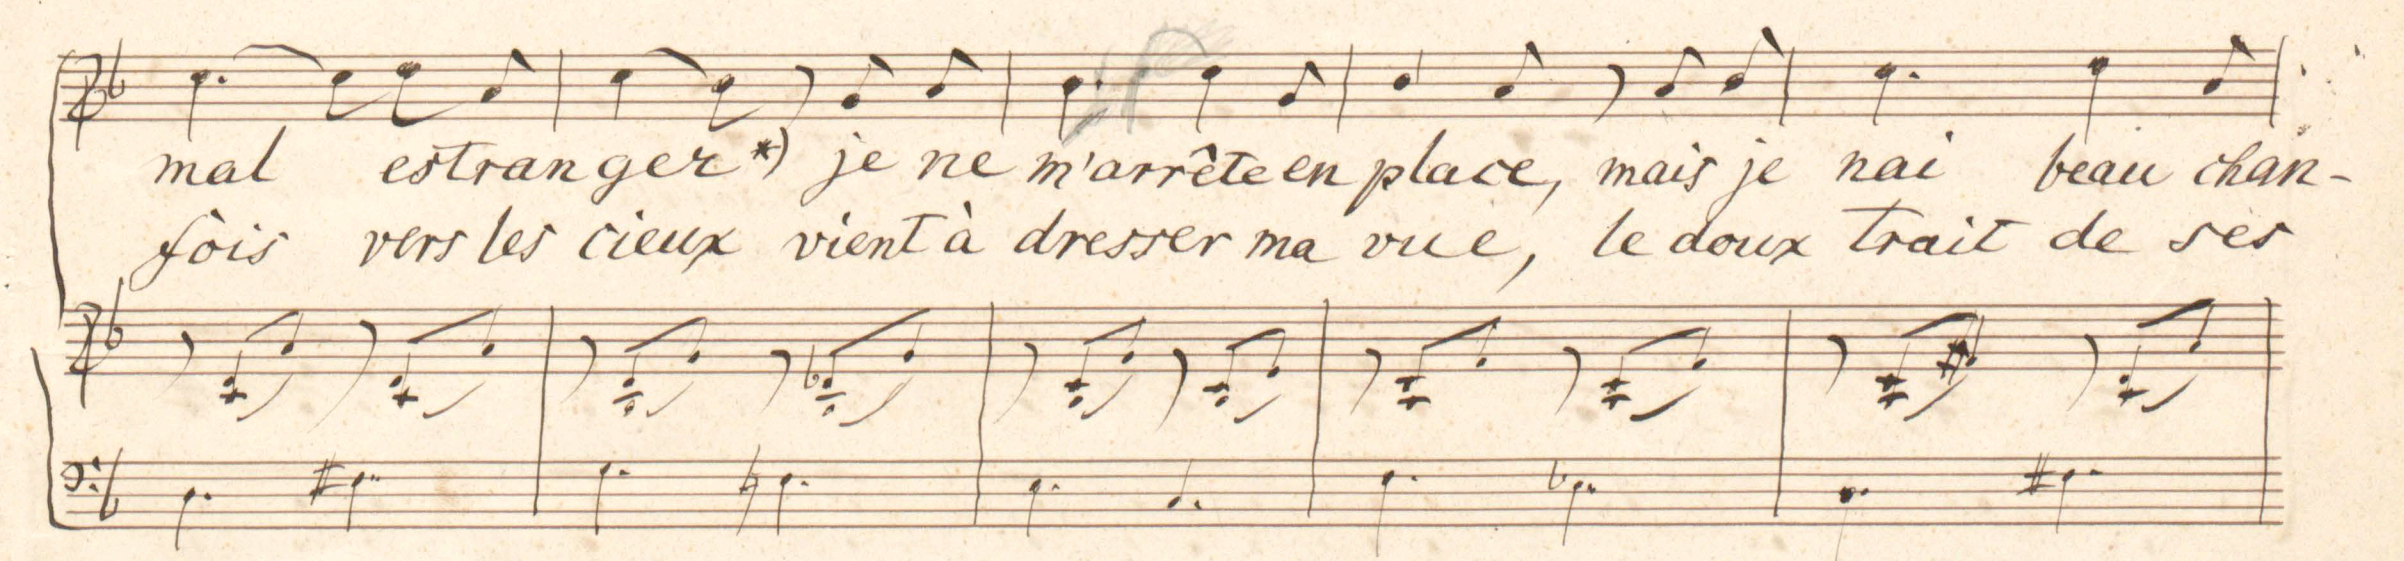 mal estranger *) je ne m'arrête en place, mais je nai beau chan-
fois vers les cieux vient à dresser ma vue, le doux trait de ses